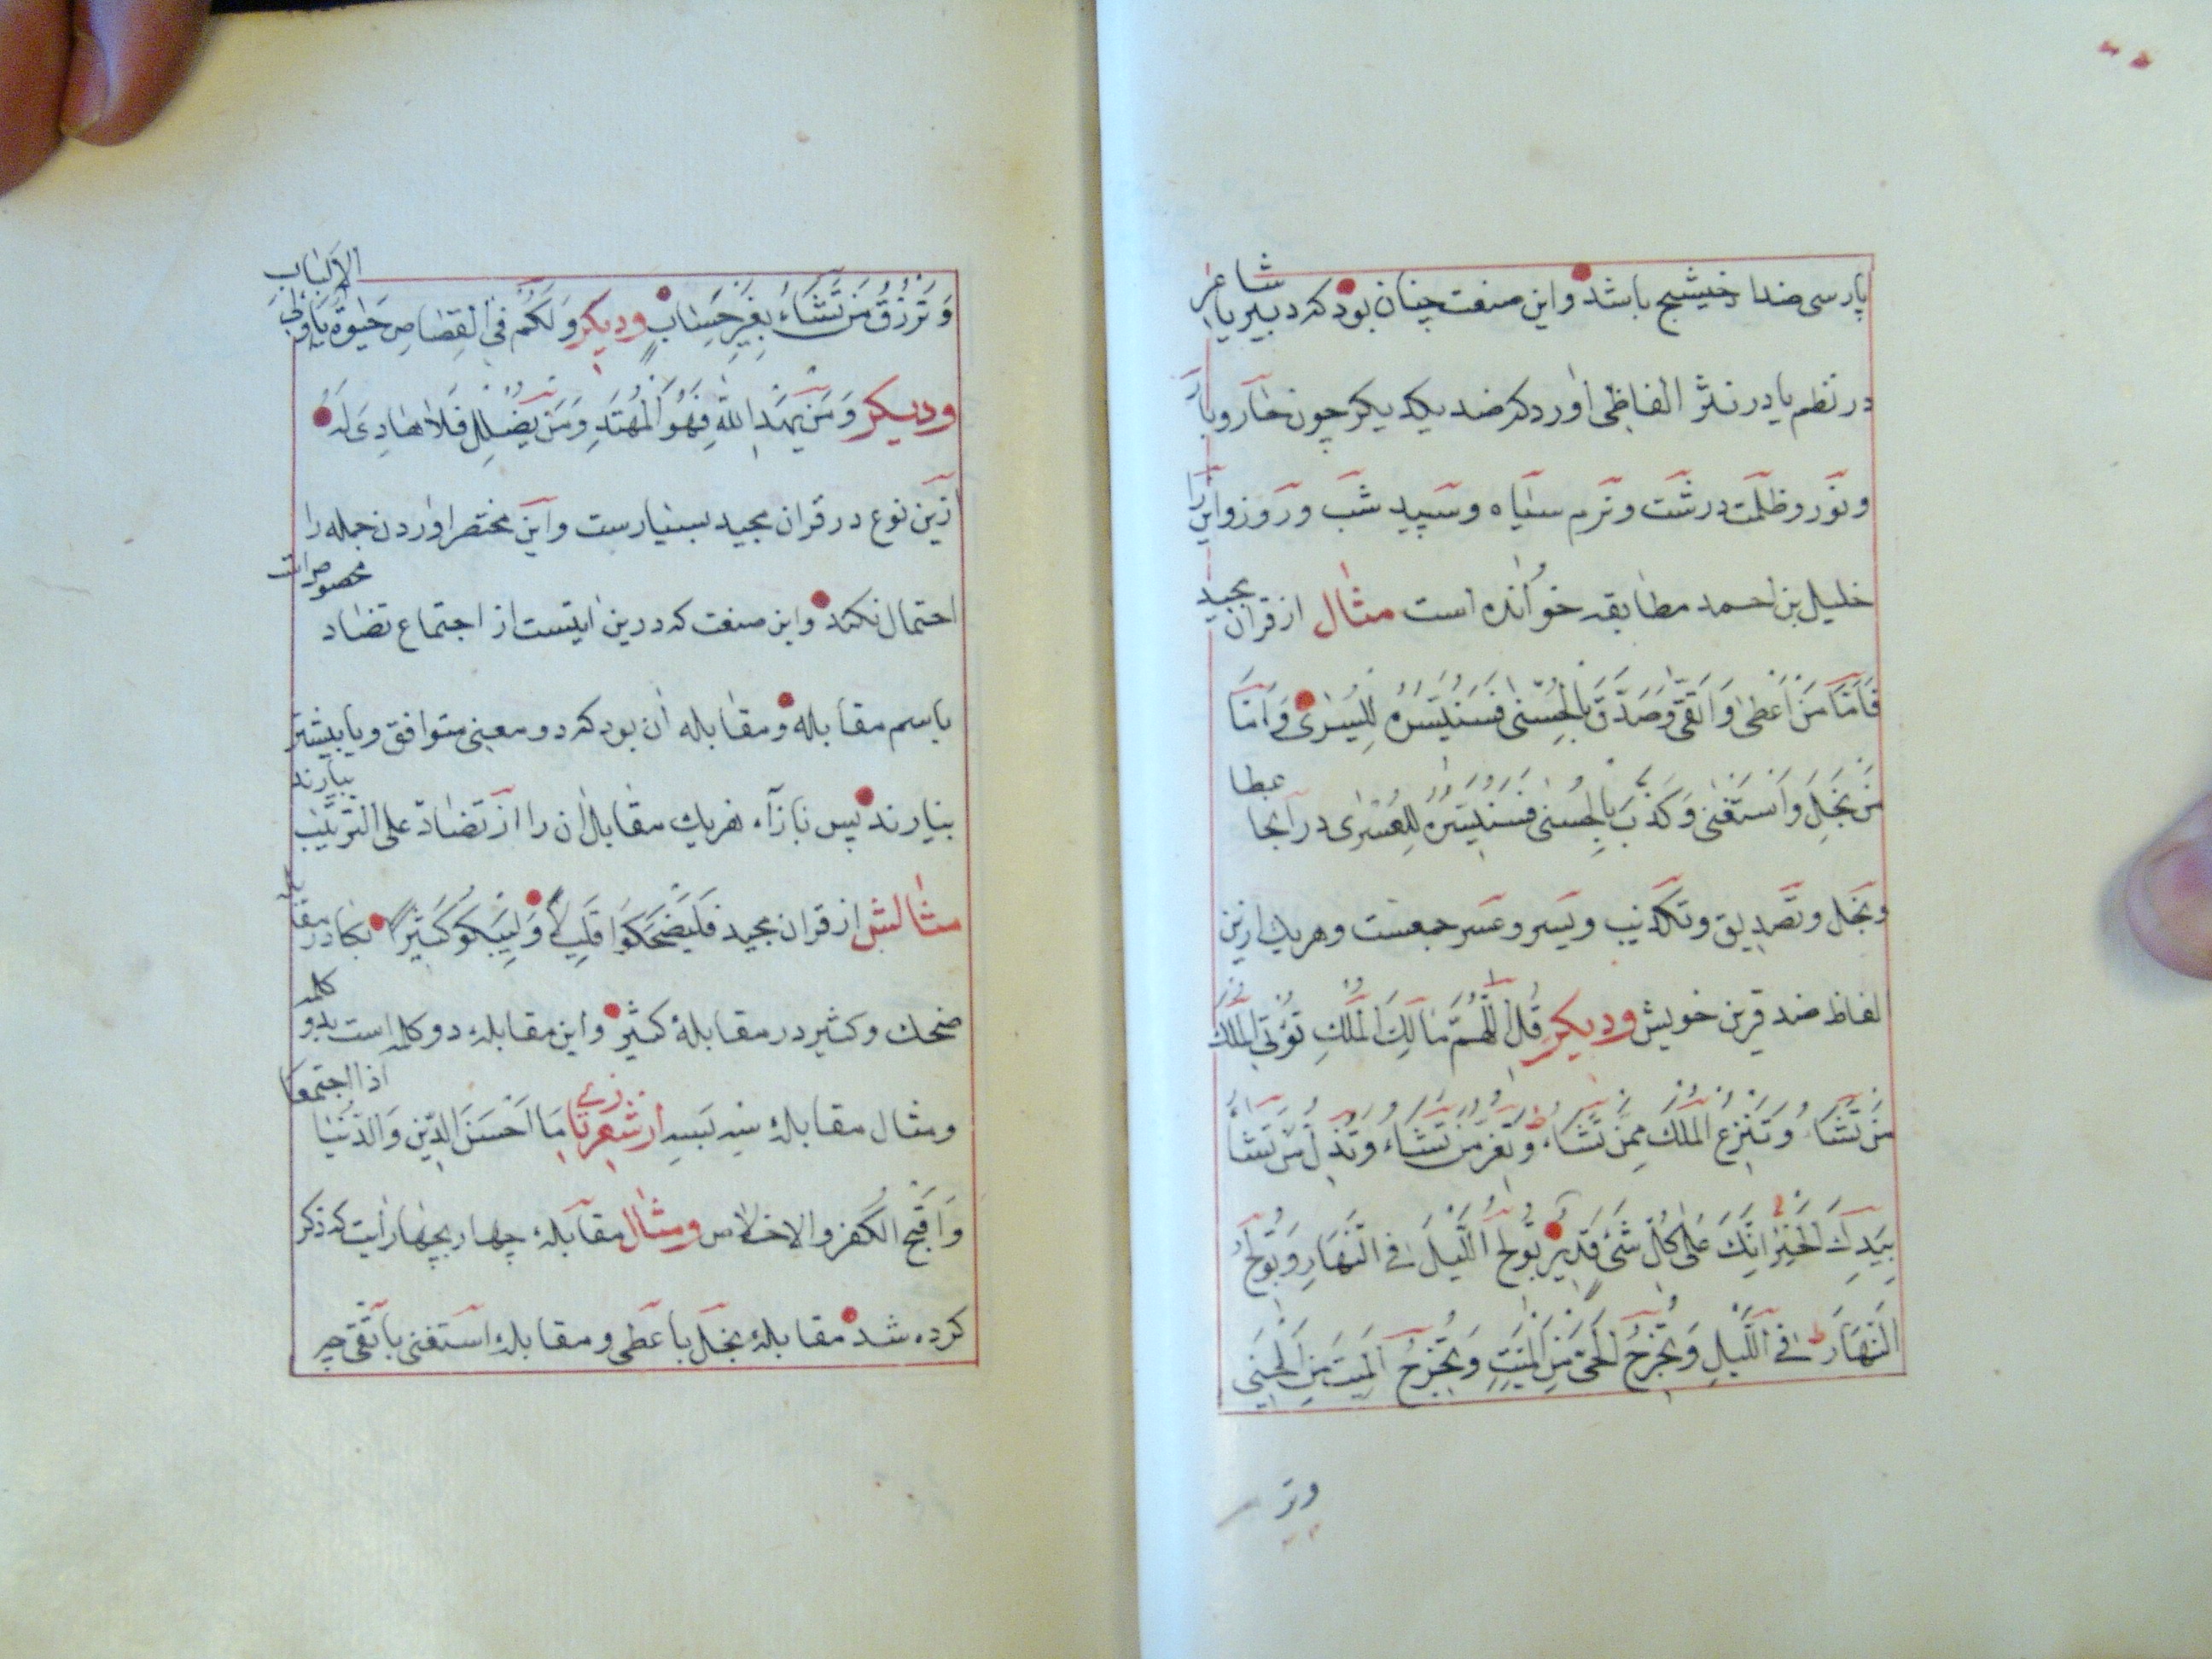 پارسی ضدا خیشیج باشد واین صنعت چنان بود که دبیر یا شاعر
در نظم یا در نثر الفاظی اورد که ضد یکدیکر چون حار و بارد
و نور و ظلمت درشت و نرم سیاه و سپید شب و روز و این را
خلیل بن احمد مطابقه خوانده است مثال از قران مجید
فَاَمَّا مَنْ اَعْطٰى وَاتَّقٰى وَصَدَّقَ بِالْحُسْنٰى فَسَنُيَسِّرُهُ لِلْيُسْرٰى وَاَمَّا
مَنْ بَخِلَ وَاسْتَغْنٰى وَكَذَّبَ بِالْحُسْنٰى فَسَنُيَسِّرُهُ لِلْعُسْرٰى در آنجا عطا
و بخل و تصدیق و تکذیب و یسر و عسر جمعست و هر یك ازین
لفاظ ضد قرین خویش ودیکر قُلِ اللّٰهُمَّ مَالِكَ الْمُلْكِ تُؤْتِي الْمُلْكَ
مَنْ تَشَاءُ وَتَنْزِعُ الْمُلْكَ مِمَّنْ تَشَاءُ وَتُعِزُّ مَنْ تَشَاءُ وَتُذِلُّ مَنْ تَشَاءُ
بِيَدِكَ الْخَيْرُ اِنَّكَ عَلٰى كُلِّ شَيْءٍ قَدِيرٌ تُولِجُ اللَّيْلَ فِي النَّهَارِ وَتُولِجُ
النَّهَارَ فِي اللَّيْلِ وَتُخْرِجُ الْحَيَّ مِنَ الْمَيِّتِ وَتُخْرِجُ الْمَيِّتَ مِنَ الْحَيِّ
وتر
وَتَرْزُقُ مَنْ تَشَاءُ بِغَيْرِ حِسَابٍ ودیکر وَلَكُمْ فِي الْقِصَاصِ حَيٰوةٌ يَا اُولِي الْاَلْبَابِ
ودیکر وَمَنْ يَهْدِ اللّٰهُ فَهُوَ الْمُهْتَدِ وَمَنْ يُضْلِلْ فَلَا هَادِىَ لَهُ
ازین نوع در قران مجید بسیارست و این مختصر اوردن جمله را
احتمال نکند و این صنعت که درین ابیتست از اجتماع تضاد مخصوص است
باسم مقابله و مقابله ان بود که دو معینی متوافق و یا بیشتر
بیارند پس بازاء هر یك مقابل ان را از تضاد علی الترتیب بیارند
مثالش از قران مجید فَلْيَضْحَكُوا قَلِيلًا وَلْيَبْكُوا كَثِيرًا بکا در مقابله
ضحك و کثیر در مقابلهٔ کثیر و این مقابلهٔ دو کلمه است بدو کلمه
و مثال مقابلهٔ سه بسه از شعر تازی مَا اَحْسَنَ الدِّينَ وَالدُّنْيَا اذا اجتمعا
وَاَقْبَحَ الكُفر والاخلاص و مثال مقابلهٔ چهار بچهار آیت که ذکر
کرده شد مقابلهٔ بخل با عطی و مقابلهٔ استغنی باتقی چه